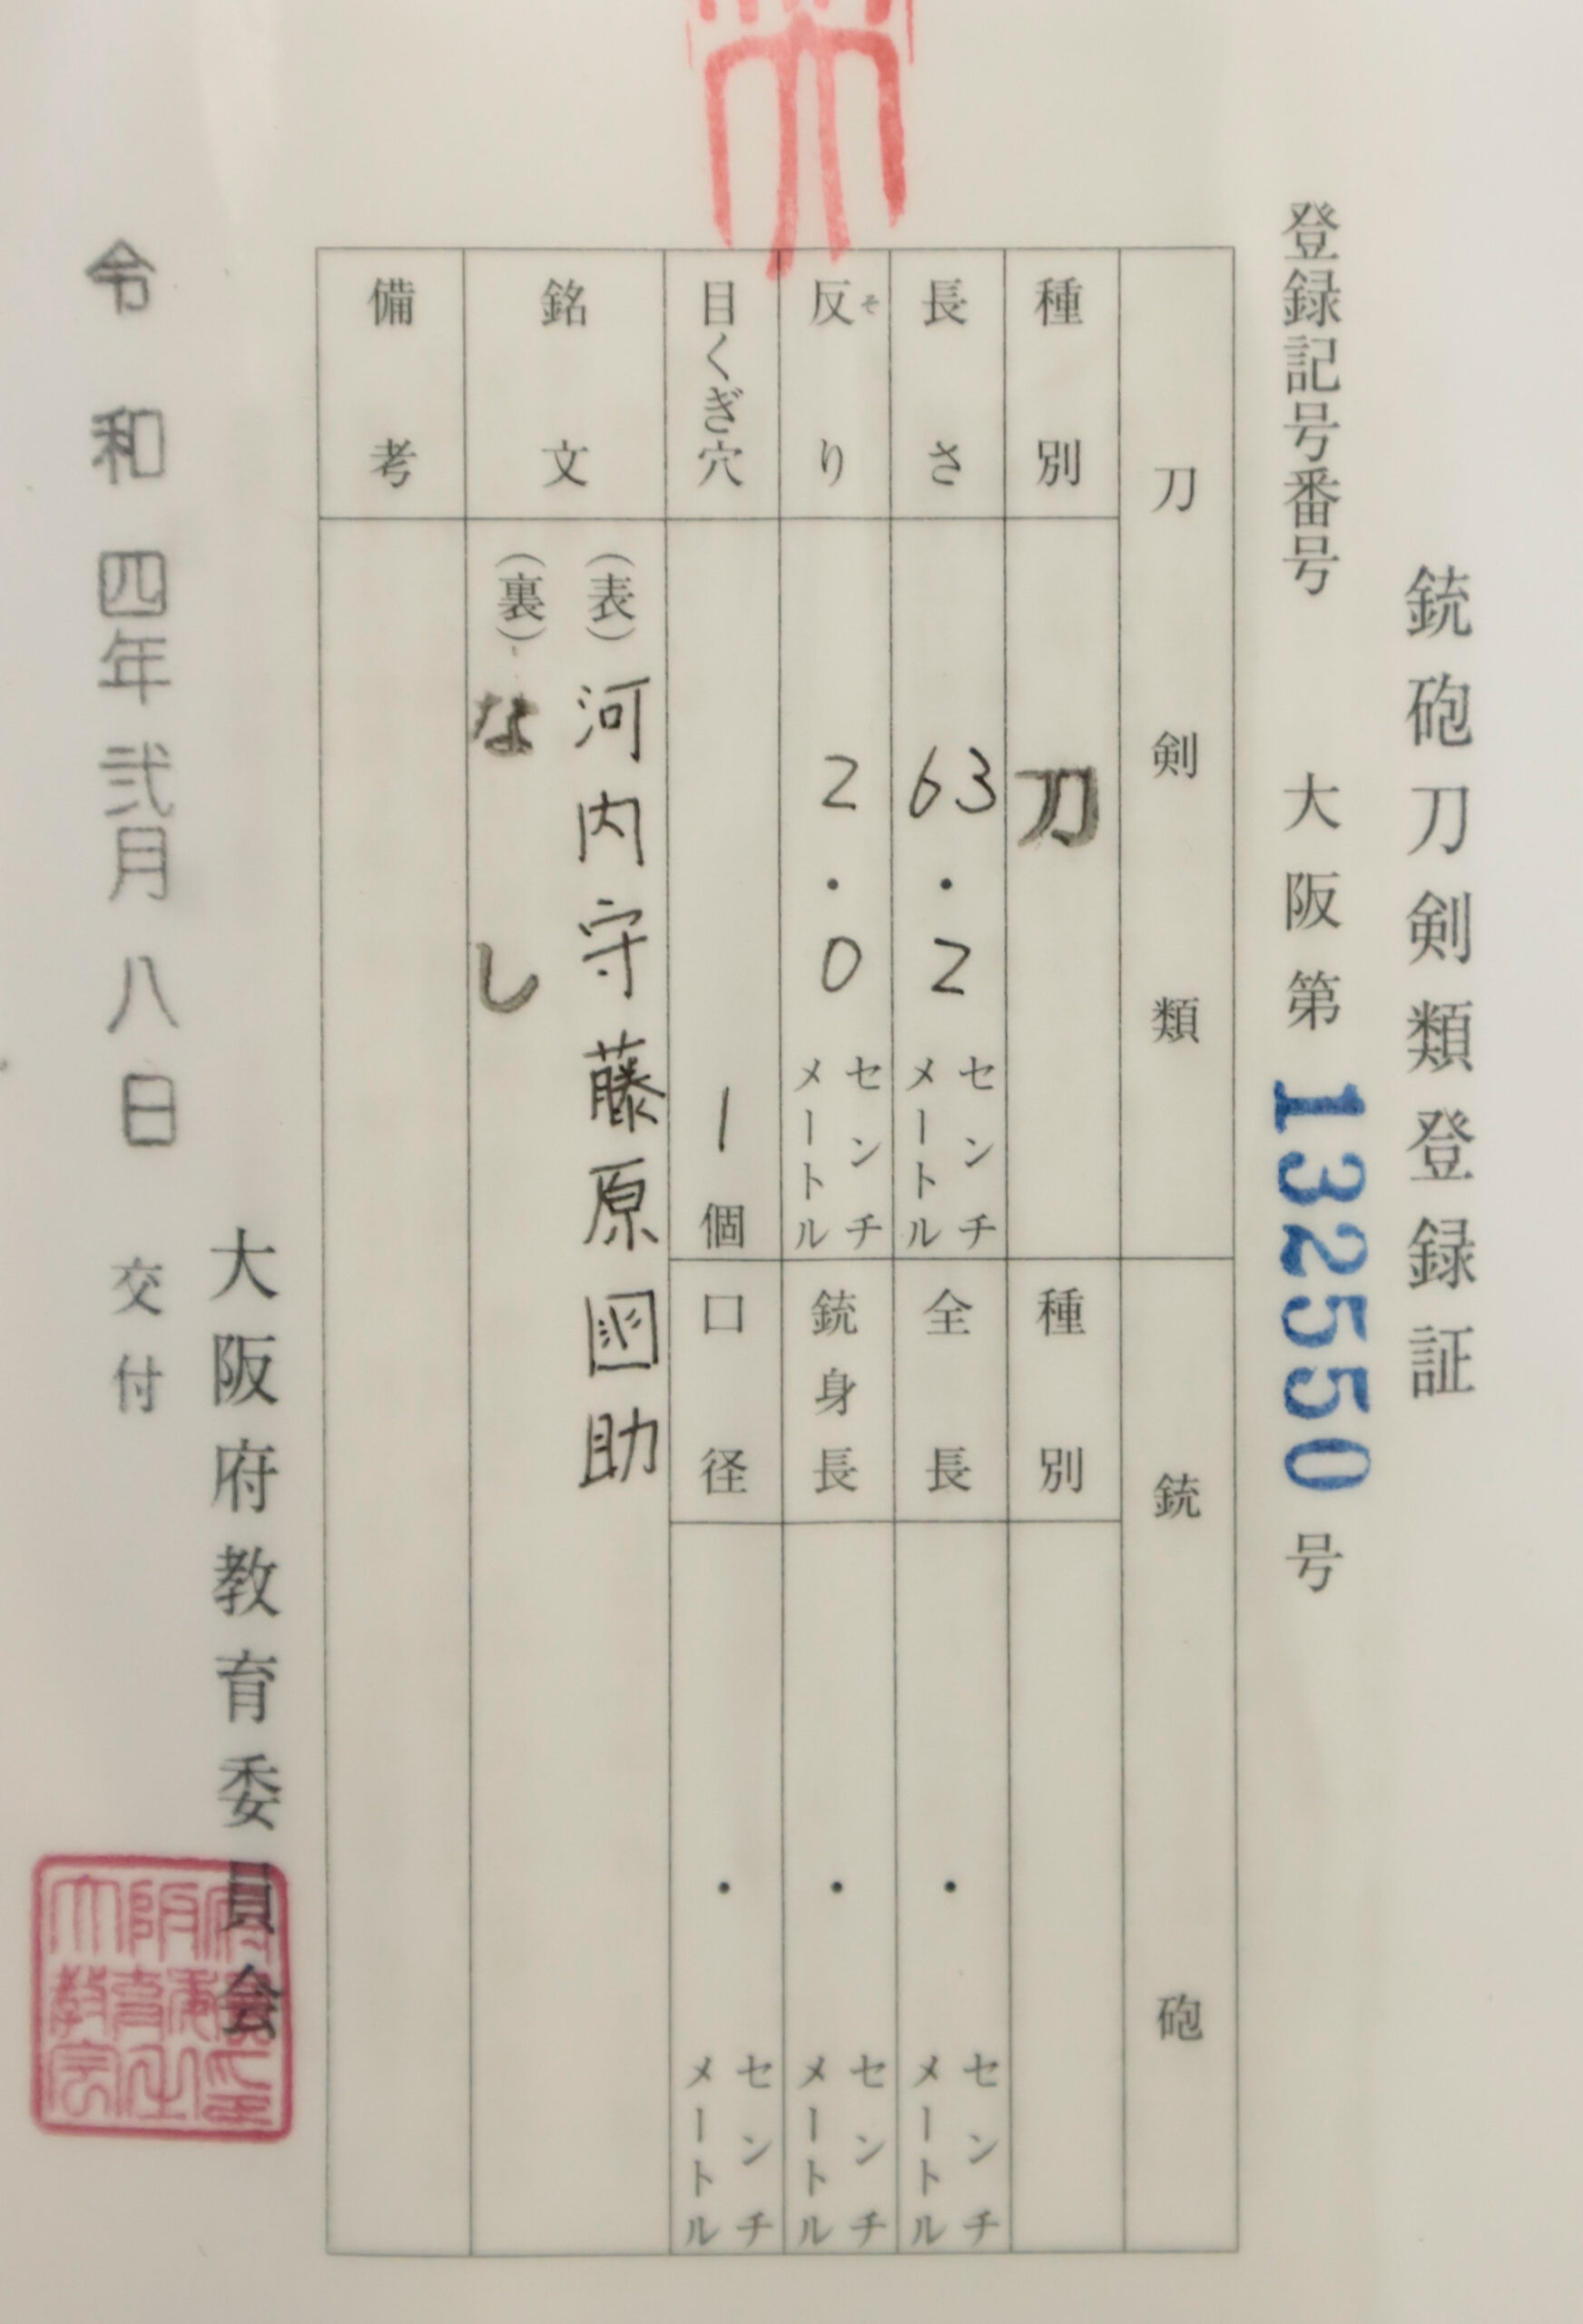 銃砲刀剣類登録証
登録記号番号 大阪第132550号
刀剣類
種別 刀
長さ 63.2センチメートル
反り 2.0センチメートル
そ
目くぎ穴 1個
銘文 (表)河内守藤原国助
(裏)なし
備考
銃砲
種別
全長 ・センチメートル
銃身長 ・センチメートル
口径 ・センチメートル
大阪府教育委員会
令和四年弐月八日 交付